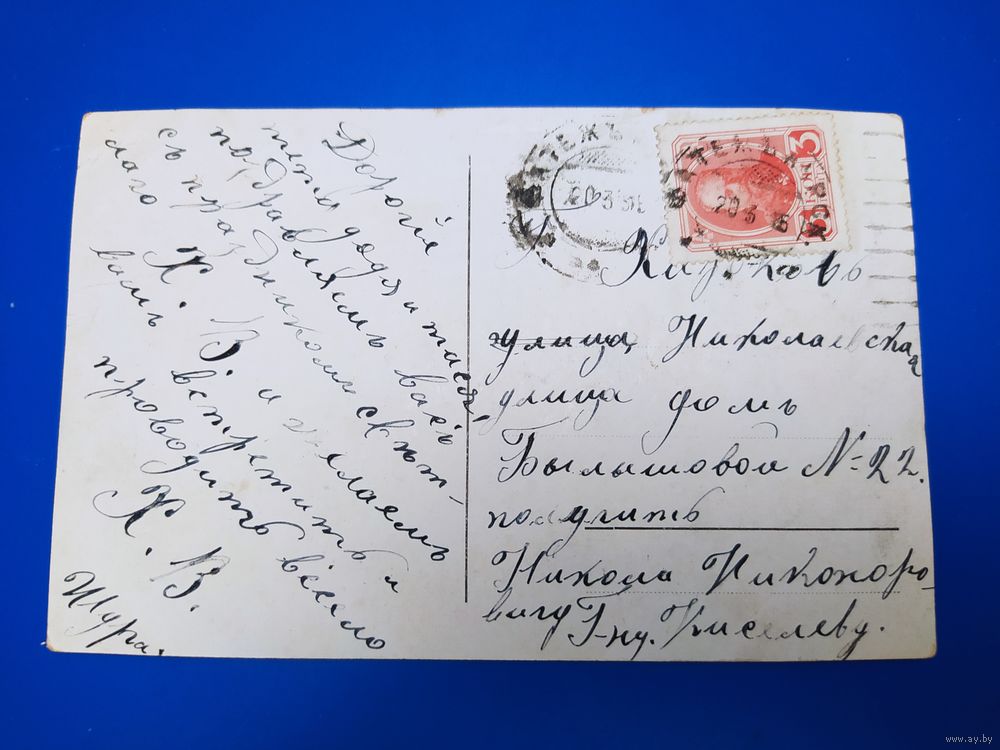 Дорогіе
тетя дядя и тася
поздравляемъ васъ
съ праздникомъ свѣт-
лаго Х. В. и желаемъ
вамъ встретить и
проводить весело
Х. В.
Шура.
20 3
3
20 3
г.
улица Николаевская
улица домъ
Былашовой № 22.
получить
Никола Никоноро-
вичу Г-ну. Киселеву.
www.ay.by